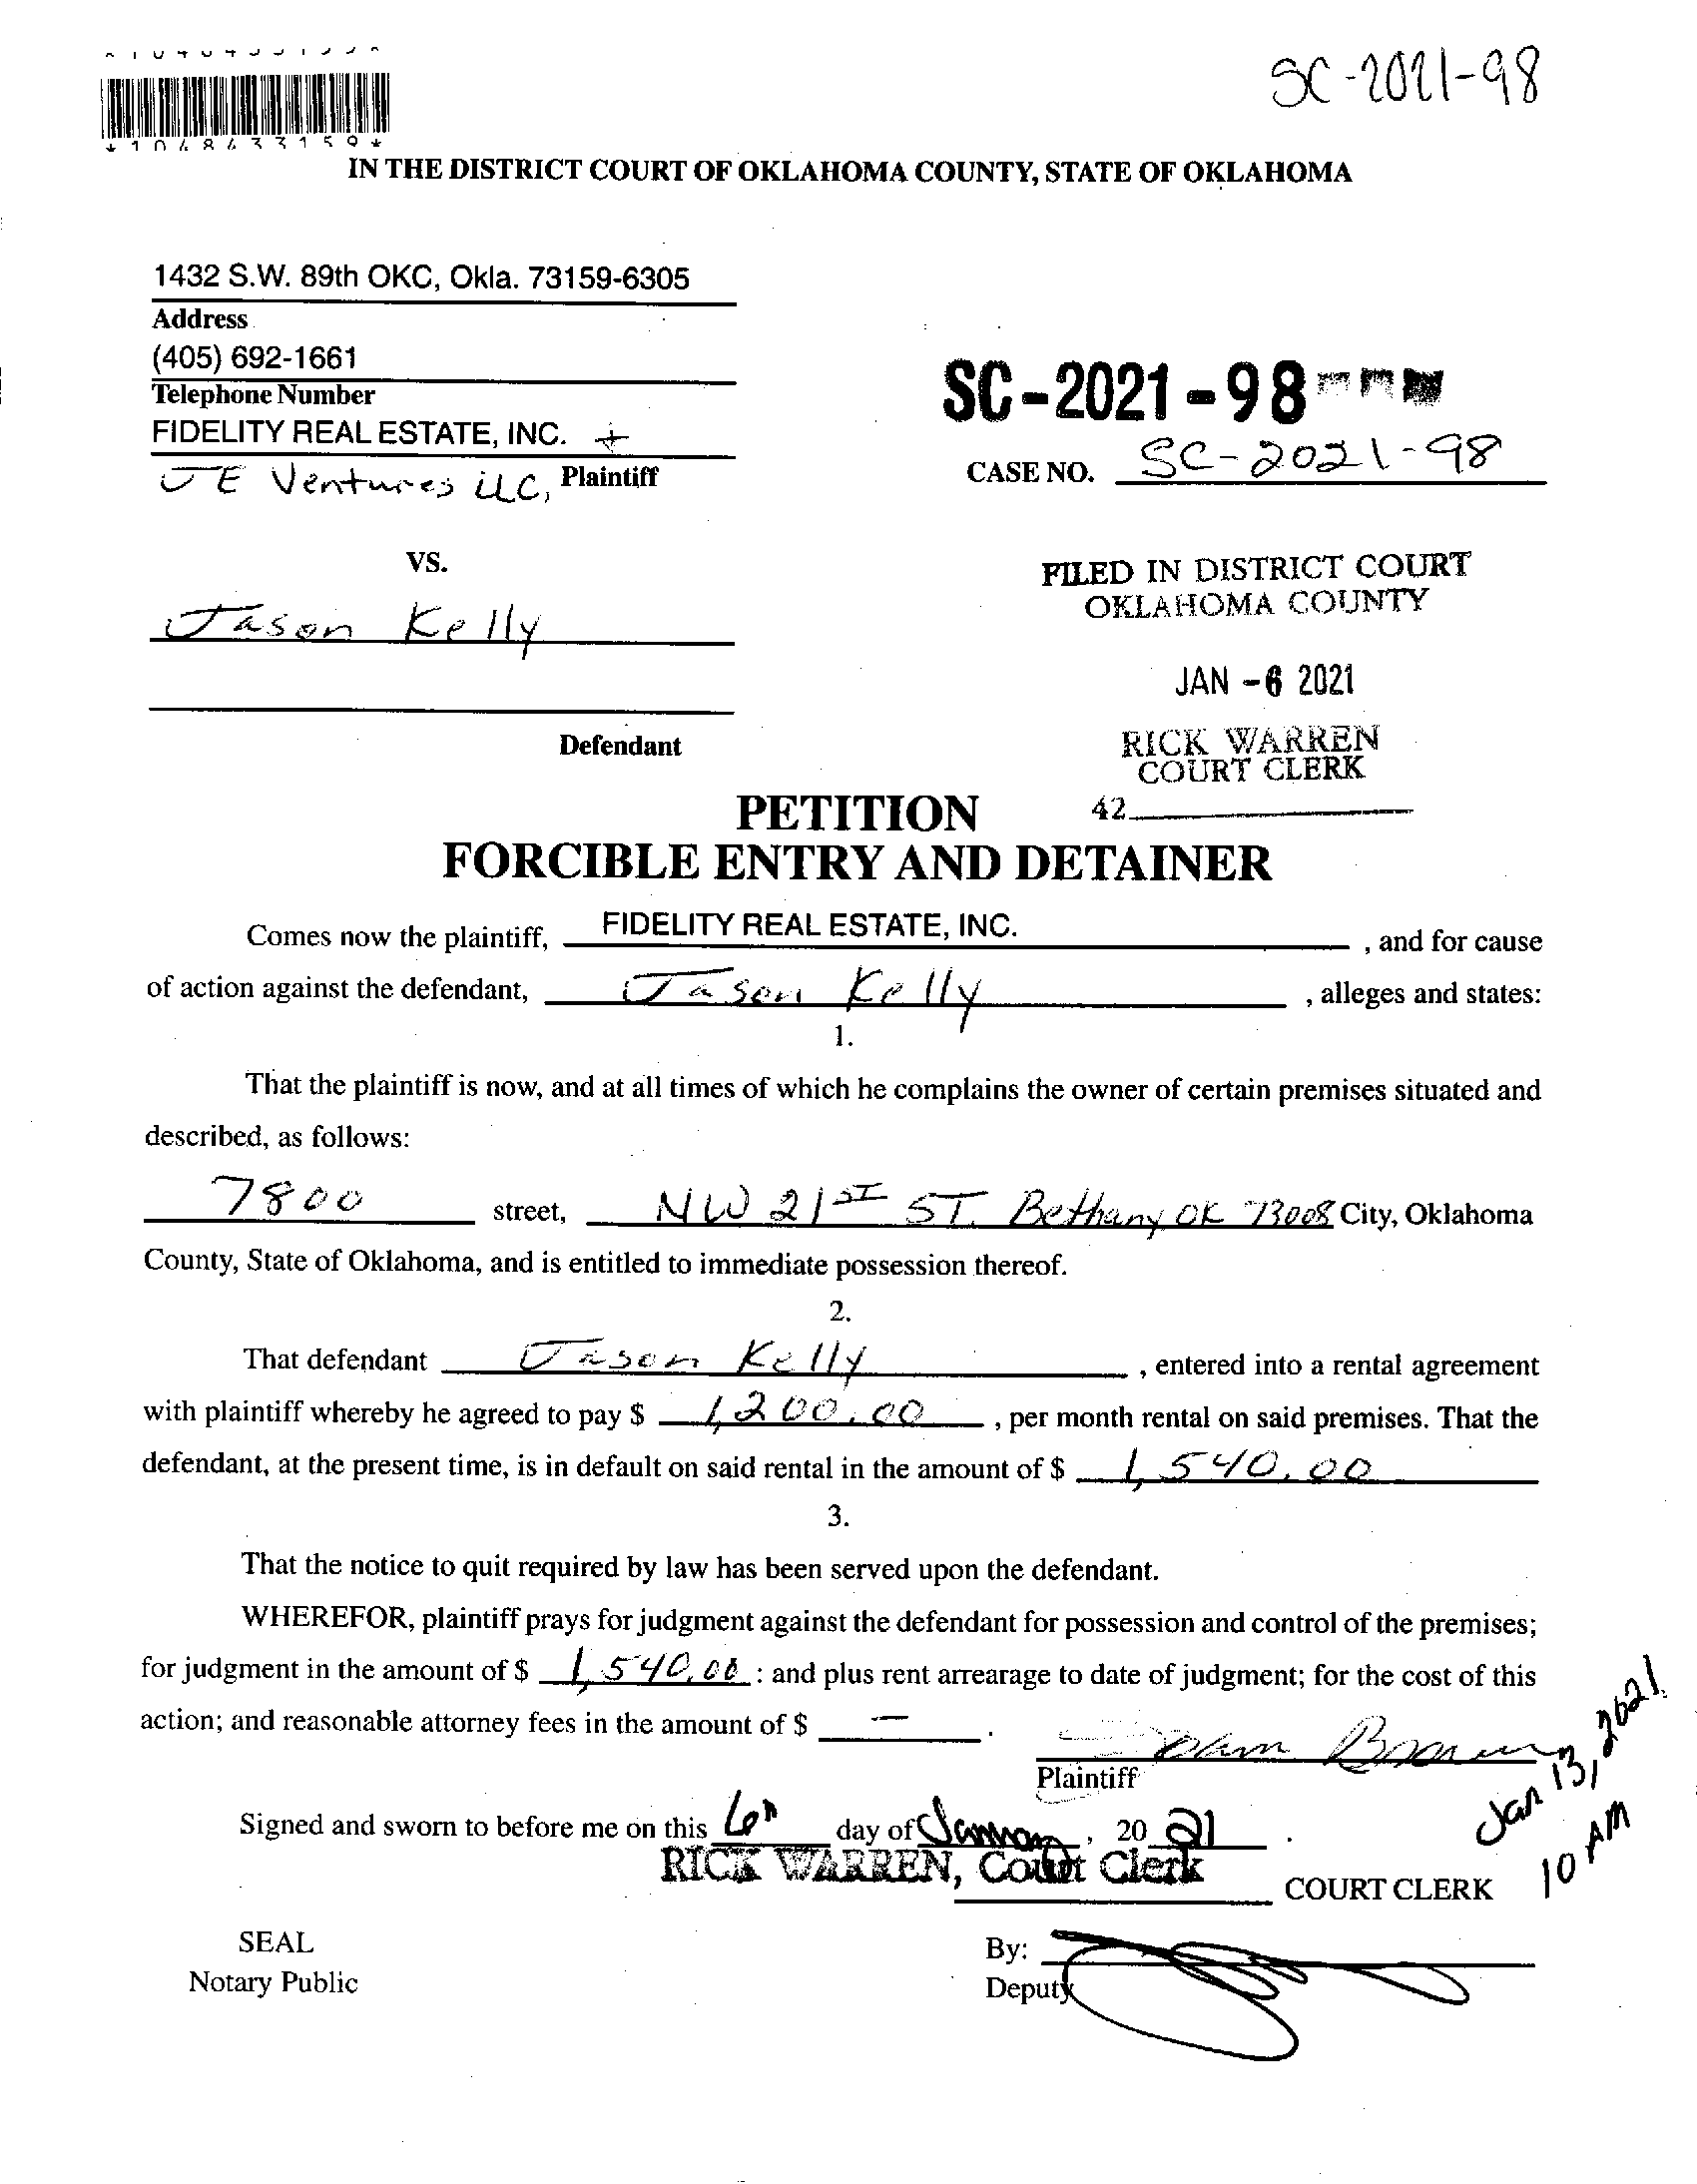 SC-2021-98
*1048433159*
IN THE DISTRICT COURT OF OKLAHOMA COUNTY, STATE OF OKLAHOMA
1432 S.W. 89th OKC, Okla. 73159-6305
Address
(405) 692-1661
Telephone Number
FIDELITY REAL ESTATE, INC. +
JE Ventures LLC, Plaintiff
SC-2021-98
CASE NO. SC-2021-98
VS.
Jason Kelly
Defendant
FILED IN DISTRICT COURT
OKLAHOMA COUNTY
JAN -6 2021
RICK WARREN
COURT CLERK
42
PETITION
FORCIBLE ENTRY AND DETAINER
Comes now the plaintiff, FIDELITY REAL ESTATE, INC. , and for cause
of action against the defendant, Jason Kelly , alleges and states:
1.
That the plaintiff is now, and at all times of which he complains the owner of certain premises situated and
described, as follows:
7800 street, NW 21ST ST. Bethany OK 73008 City, Oklahoma
County, State of Oklahoma, and is entitled to immediate possession thereof.
2.
That defendant Jason Kelly , entered into a rental agreement
with plaintiff whereby he agreed to pay $ 1,200.00 , per month rental on said premises. That the
defendant, at the present time, is in default on said rental in the amount of $ 1,540.00
3.
That the notice to quit required by law has been served upon the defendant.
WHEREFOR, plaintiff prays for judgment against the defendant for possession and control of the premises;
for judgment in the amount of $ 1,540.00 : and plus rent arrearage to date of judgment; for the cost of this
action; and reasonable attorney fees in the amount of $ — .
Plaintiff
Jan 13, 2021
10 AM
Signed and sworn to before me on this day of January, 20 21 .
RICK WARREN, Court Clerk
COURT CLERK
SEAL
Notary Public
By:
Deputy